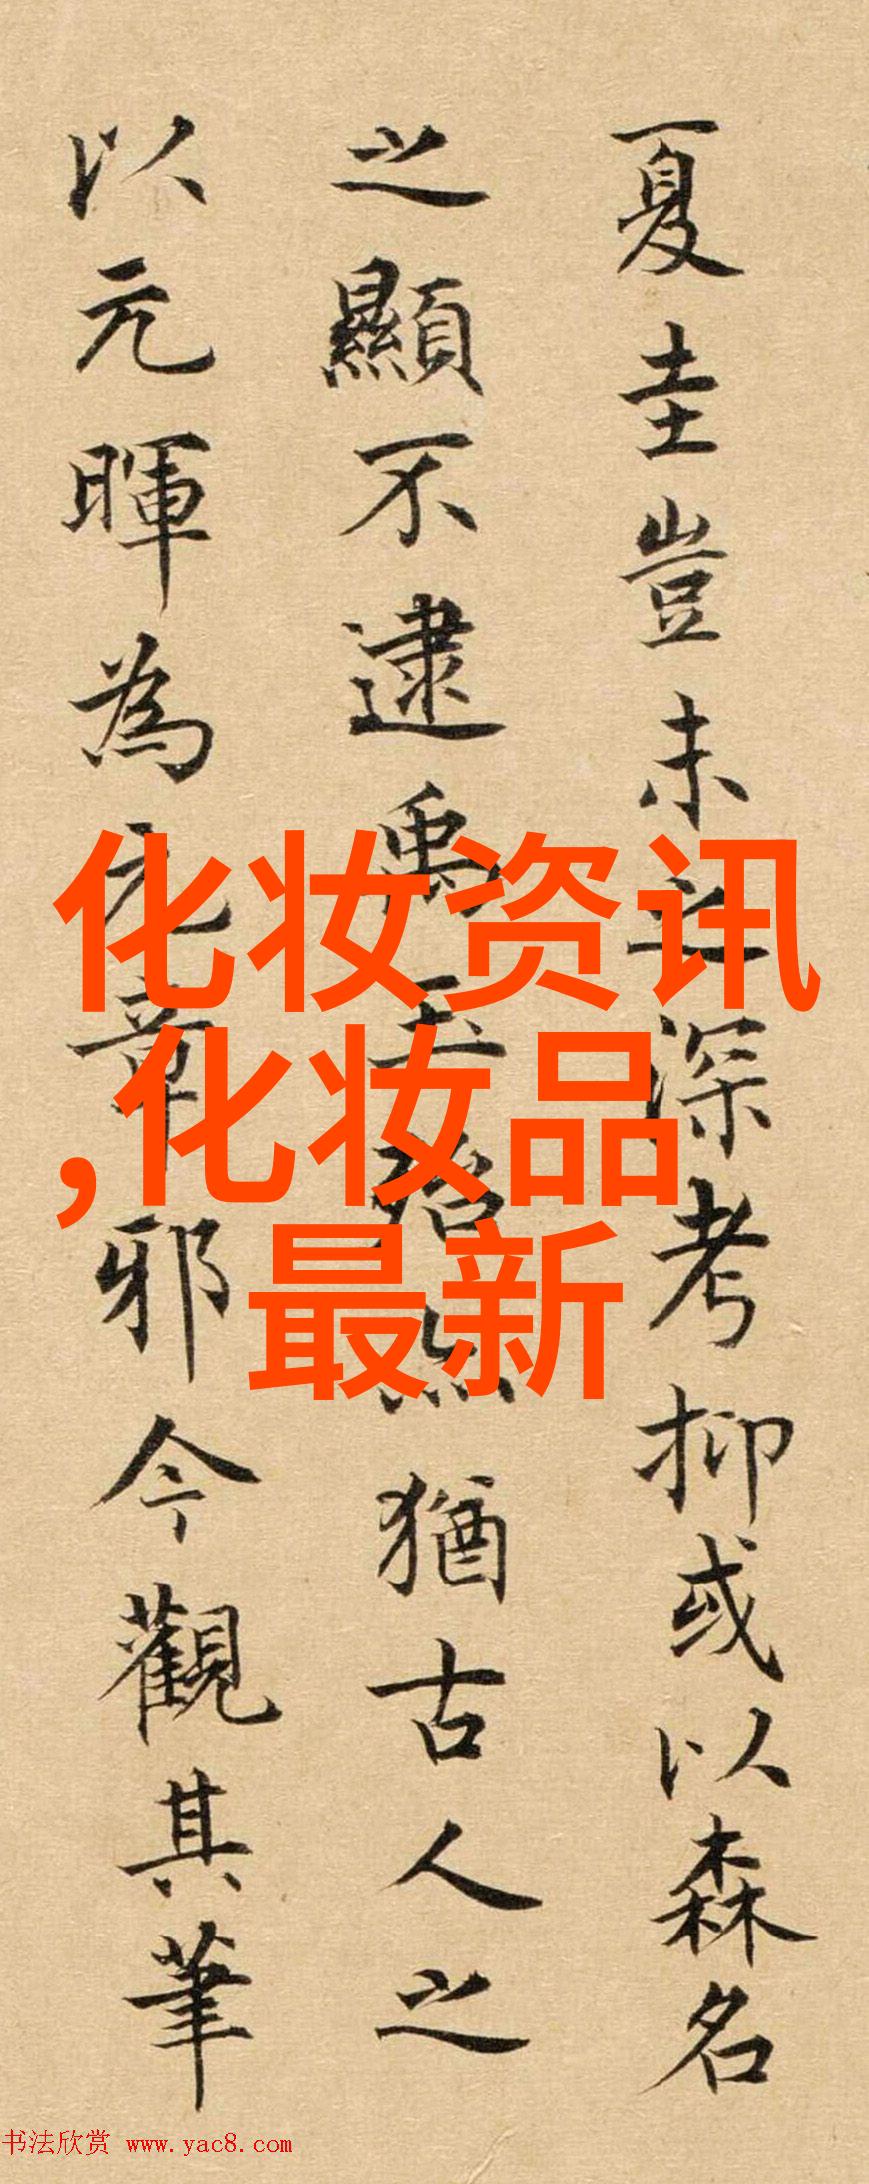 夏圭豈未之深考抑或以森名
之顯不逮禹玉殆亦猶古人之
以元暉為元章邪今觀其筆
化妆资讯
,化妆品
最新
书法欣赏 www.yac8.com